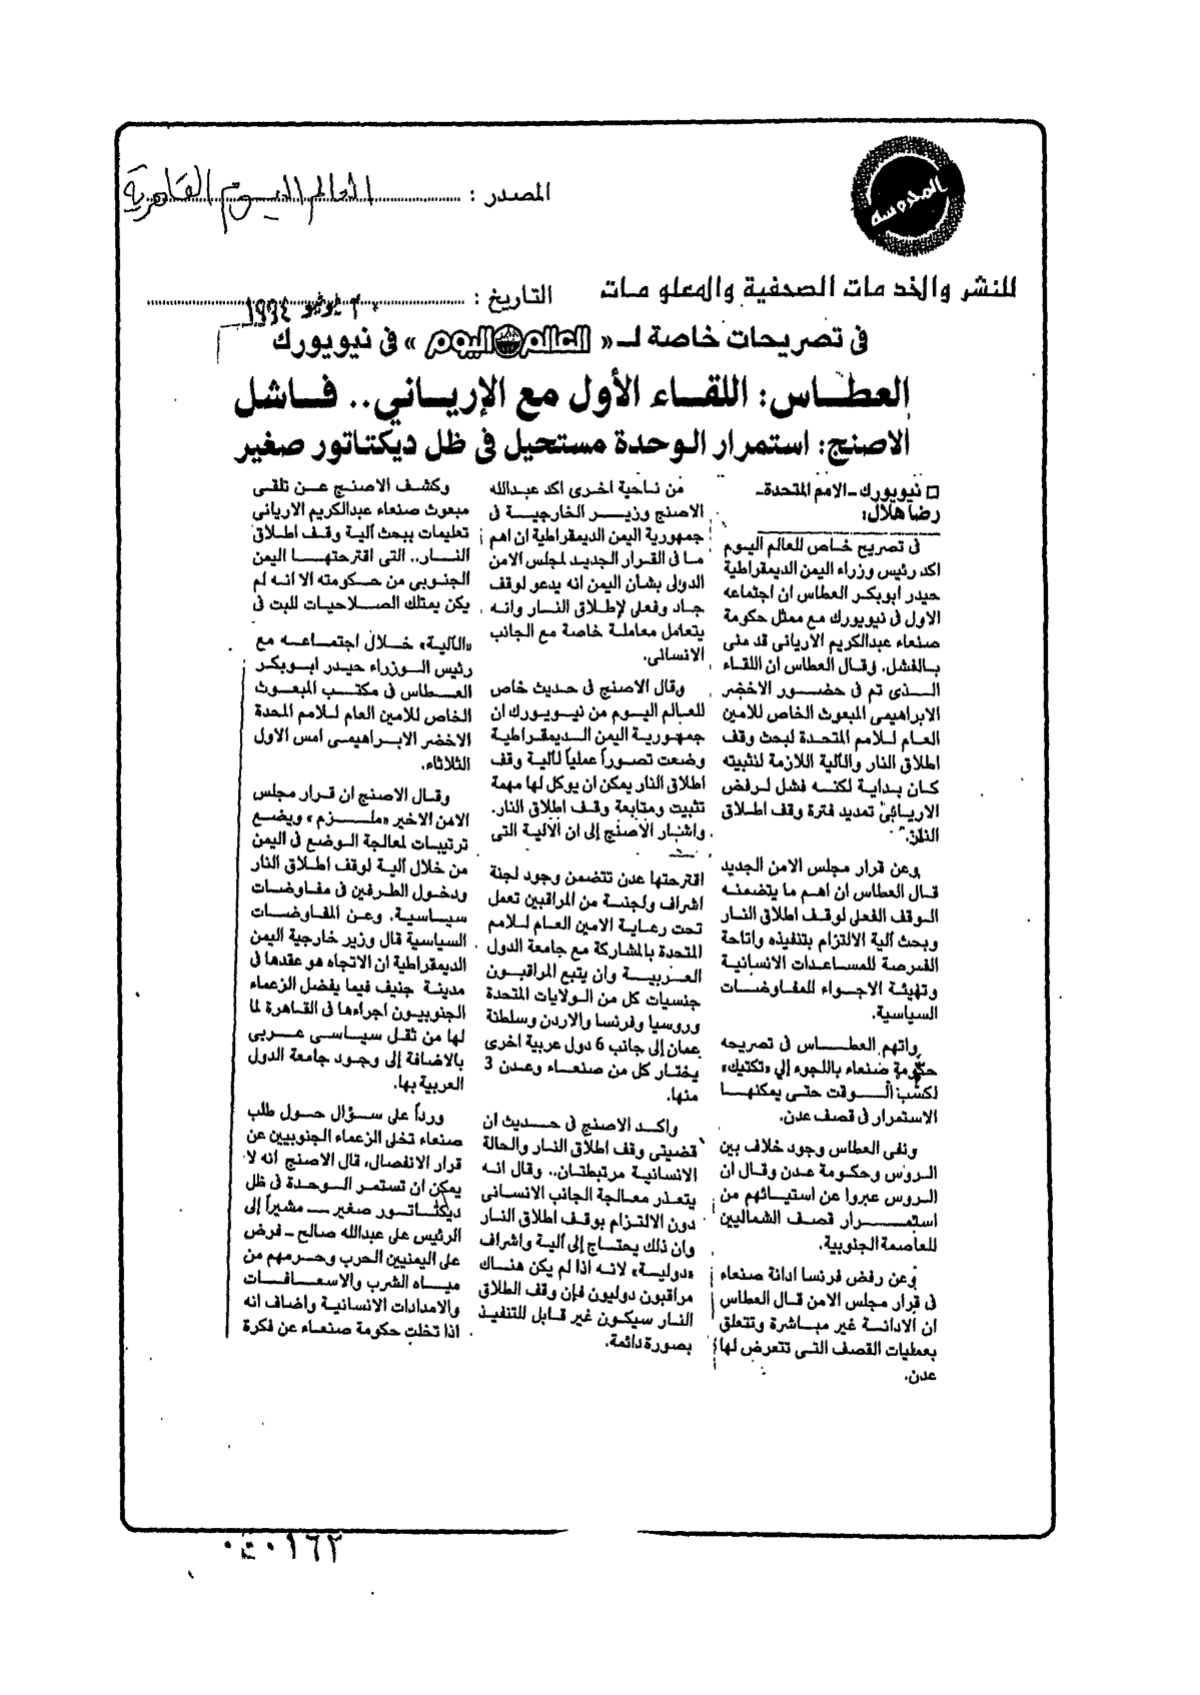 المحروسة
المصدر : العالم اليوم القاهرية
للنشر والخدمات الصحفية والمعلومات
التاريخ : ٣٠ يونيو ١٩٩٤
فى تصريحات خاصة لـ «العالم اليوم» فى نيويورك
العطاس: اللقاء الأول مع الإريانى.. فاشل
الاصنج: استمرار الوحدة مستحيل فى ظل ديكتاتور صغير
□ نيويورك - الامم المتحدة-
رضا هلال:
فى تصريح خاص للعالم اليوم
اكد رئيس وزراء اليمن الديمقراطية
حيدر ابوبكر العطاس ان اجتماعه
الاول فى نيويورك مع ممثل حكومة
صنعاء عبدالكريم الاريانى قد منى
بالفشل. وقال العطاس ان اللقاء
الذى تم فى حضور الاخضر
الابراهيمى المبعوث الخاص للامين
العام للامم المتحدة لبحث وقف
اطلاق النار والآلية اللازمة لتثبيته
كان بداية لكنه فشل لرفض
الاريانى تمديد فترة وقف اطلاق
النار.
وعن قرار مجلس الامن الجديد
قال العطاس ان اهم ما يتضمنه
الوقف الفعلى لوقف اطلاق النار
وبحث آلية الالتزام بتنفيذه واتاحة
الفرصة للمساعدات الانسانية
وتهيئة الاجواء للمفاوضات
السياسية.
واتهم العطاس فى تصريحه
حكومة صنعاء باللجوء إلي «تكتيك»
لكسب الوقت حتى يمكنها
الاستمرار فى قصف عدن.
ونفى العطاس وجود خلاف بين
الروس وحكومة عدن وقال ان
الروس عبروا عن استيائهم من
استمرار قصف الشماليين
للعاصمة الجنوبية.
وعن رفض فرنسا ادانة صنعاء
فى قرار مجلس الامن قال العطاس
ان الادانة غير مباشرة وتتعلق
بعمليات القصف التى تتعرض لها
عدن.
من ناحية اخرى اكد عبدالله
الاصنج وزير الخارجية فى
جمهورية اليمن الديمقراطية ان اهم
ما فى القرار الجديد لمجلس الامن
الدولى بشأن اليمن انه يدعو لوقف
جاد وفعلى لإطلاق النار وانه
يتعامل معاملة خاصة مع الجانب
الانسانى.
وقال الاصنج فى حديث خاص
للعالم اليوم من نيويورك ان
جمهورية اليمن الديمقراطية
وضعت تصوراً عملياً لآلية وقف
اطلاق النار يمكن ان يوكل لها مهمة
تثبيت ومتابعة وقف اطلاق النار.
واشار الاصنج إلى ان الآلية التى
اقترحتها عدن تتضمن وجود لجنة
اشراف ولجنة من المراقبين تعمل
تحت رعاية الامين العام للامم
المتحدة بالمشاركة مع جامعة الدول
العربية وان يتبع المراقبون
جنسيات كل من الولايات المتحدة
وروسيا وفرنسا والاردن وسلطنة
عمان إلى جانب 6 دول عربية اخرى
يختار كل من صنعاء وعدن 3
منها.
واكد الاصنج فى حديث ان
قضيتى وقف اطلاق النار والحالة
الانسانية مرتبطتان.. وقال انه
يتعذر معالجة الجانب الانسانى
دون الالتزام بوقف اطلاق النار
وان ذلك يحتاج إلى آلية واشراف
«دولية» لانه اذا لم يكن هناك
مراقبون دوليون فإن وقف الطلاق
النار سيكون غير قابل للتنفيذ
بصورة دائمة.
وكشف الاصنج عن تلقى
مبعوث صنعاء عبدالكريم الاريانى
تعليمات ببحث آلية وقف اطلاق
النار.. التى اقترحتها اليمن
الجنوبى من حكومته الا انه لم
يكن يمتلك الصلاحيات للبت فى
«الآلية» خلال اجتماعه مع
رئيس الوزراء حيدر ابوبكر
العطاس فى مكتب المبعوث
الخاص للامين العام للامم المحدة
الاخضر الابراهيمى امس الاول
الثلاثاء.
وقال الاصنج ان قرار مجلس
الامن الاخير «ملزم» ويضع
ترتيبات لمعالجة الوضع فى اليمن
من خلال آلية لوقف اطلاق النار
ودخول الطرفين فى مفاوضات
سياسية. وعن المفاوضات
السياسية قال وزير خارجية اليمن
الديمقراطية ان الاتجاه هو عقدها فى
مدينة جنيف فيما يفضل الزعماء
الجنوبيون اجراءها فى القاهرة لما
لها من ثقل سياسى عربى
بالاضافة إلى وجود جامعة الدول
العربية بها.
ورداً على سؤال حول طلب
صنعاء تخلى الزعماء الجنوبيين عن
قرار الانفصال، قال الاصنج انه لا
يمكن ان تستمر الوحدة فى ظل
ديكتاتور صغير - مشيراً إلى
الرئيس على عبدالله صالح - فرض
على اليمنيين الحرب وحرمهم من
مياه الشرب والاسعافات
والامدادات الانسانية واضاف انه
اذا تخلت حكومة صنعاء عن فكرة
١٦٢